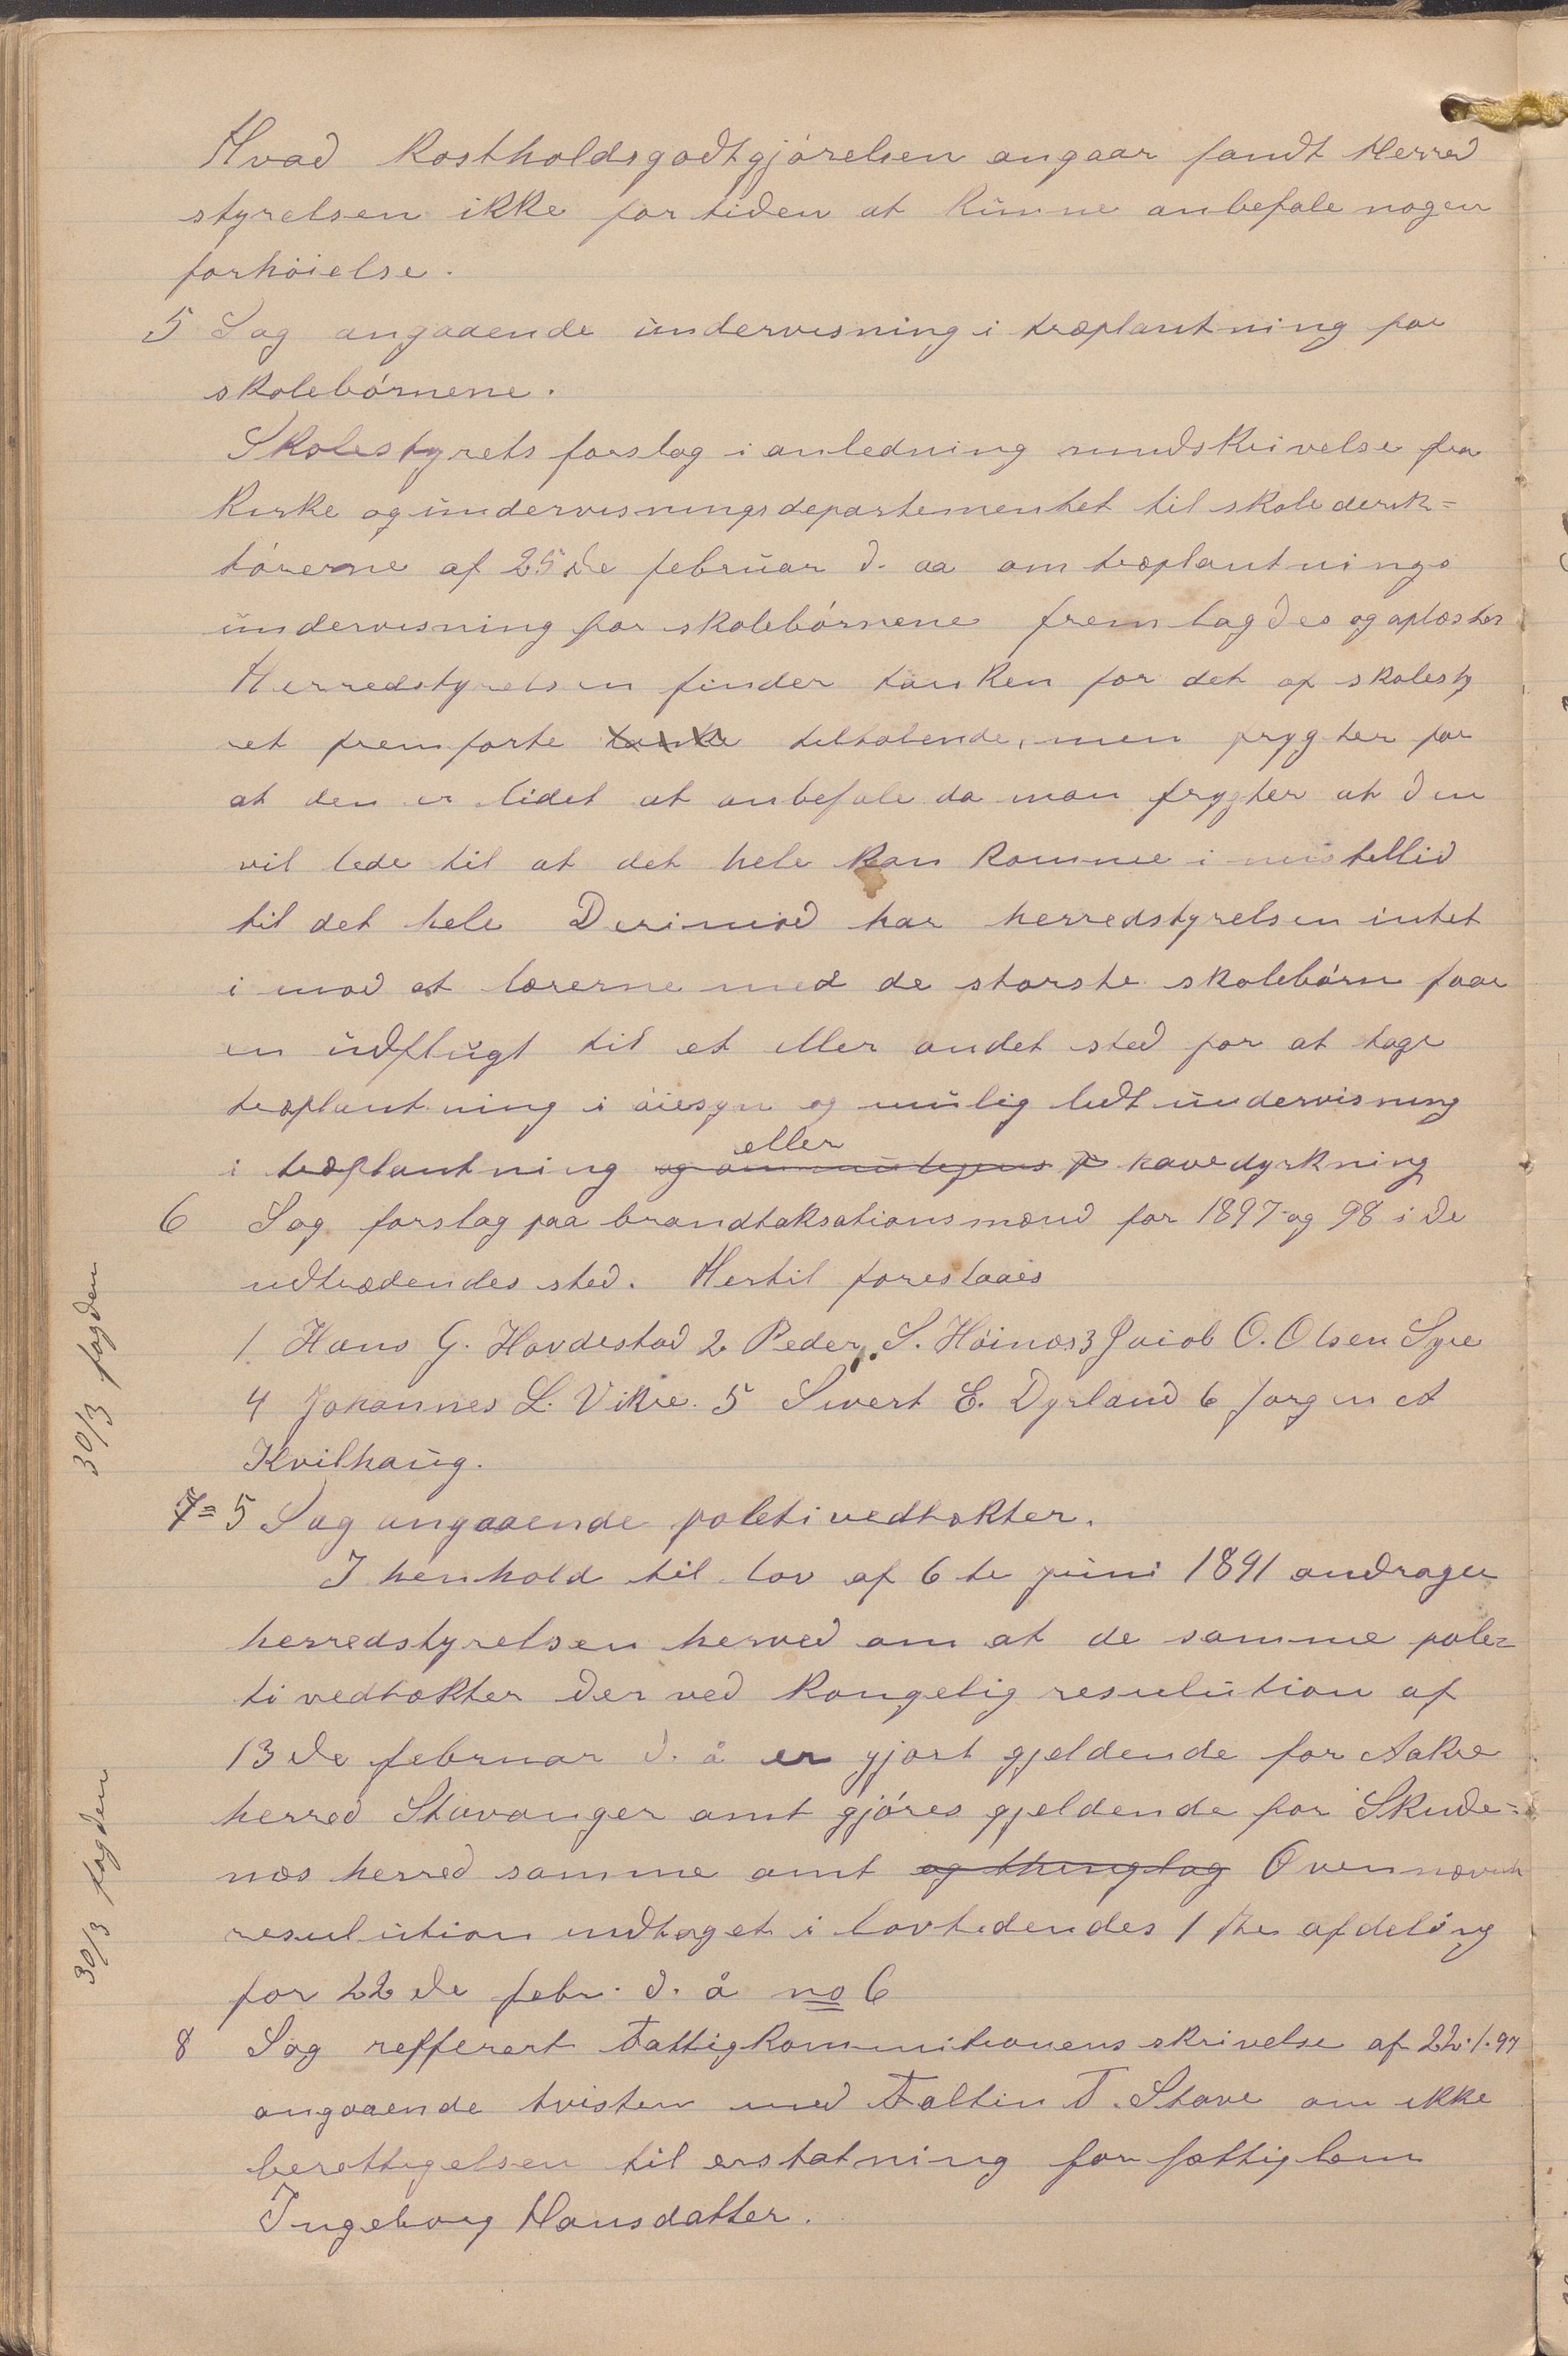 Hvad Kostholdsgodtgjórelsen angaar fandt Herred
styrelsen ikke for tiden at kunne anbefale nogen
forhöielse.
5 Sag angaaende undervisning i træplantning for
skolebórnene.
Skolestyrets forslag i anledning rundskrivelse fra
Kirke og undervisningsdepartementet til skoledirek=
tórerne af 25de februar d. aa om træplantnings
undervisning for skolebórnene fremlagdes og oplæstes
Herredstyrelsen finder tanken for det af skolesty
ret fremforte tanke tiltalende, men frygter for
at den er lidet at anbefale da man frygter at den
vil lede til at det hele kan komme i mistillid
til det hele Derimod har herredstyrelsen intet
i mod at lærerne med de storste skolebórn faar
en udflugt til et eller andet sted for at tage
træplantning i óiesyn og mulig lidt undervisning
eller
i træplantning havedyrkning
6 Sag forslag paa brandtaksationsmænd for 1897 og 98 i de
udtrædendes sted. Hertil forestaaes
1. Hans G. Hovdestad 2 Peder S. Höinæs 3 Jacob O. Olsen Syre
4 Johannes L. Vikre. 5 Sivert E. Dyrland 6 Jorgen A
Kvilhaug.
7= 5 Sag angaaende politivedtækter.
I henhold til lov af 6te juni 1891 andrager
herredstyrelsen herved om at de samme poli=
tivedtækter der ved kongelig resulution af
13de februar d. å er gjort gjeldende for Aakre
herred Stavanger amt gjóres gjeldende for Skude=
næs herred samme amt og thinglag Ovennævnte
resulution indtaget i lovtidendes 1ste afdeling
for 22de febr. d. å no 6
8 Sag refferert Fattigkommitionens skrivelse af 22.1.97
angaaende tvisten med Faltin T. Stave om ikke
berettigelsen til erstatning for fattiglem
Ingeborg Hansdatter.
30/3 fogden
30/3 fogden